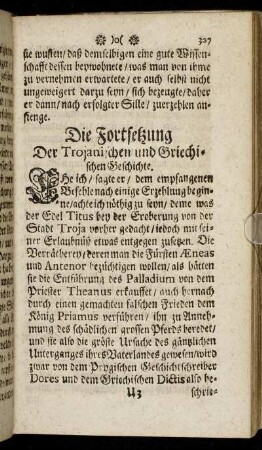 )o( 327
sie wusten/ daß demselbigen eine gute Wissen-
schafft dessen beywohnete/ was man von ihme
zu vernehmen erwartete/ er auch selbst nicht
ungeweigert darzu seyn/ sich bezeugte/ daher
er dann/ nach erfolgter Stille/ zuerzehlen an-
fienge.
Die Fortsetzung
Der Trojanischen und Griechi-
schen Geschichte.
EHe ich/ sagte er/ dem empfangenen
Befehle nach einige Erzehlung begin-
ne/ achte ich nöthig zu seyn/ deme was
der Edel Titus bey der Eroberung von der
Stadt Troja vorher gedacht/ jedoch mit sei-
ner Erlaubnüß etwas entgegen zusetzen. Die
Verrätherey/ deren man die Fürsten Æneas
und Antenor bezüchtigen wollen/ als hätten
sie die Entführung des Palladium von dem
Priester Theanus erkauffet/ auch hernach
durch einen gemachten falschen Frieden dem
König Priamus verführen/ ihn zu Anneh-
mung des schädlichen grossen Pferds beredet/
und sie also die gröste Ursache des gäntzlichen
Unterganges ihres Vaterlandes gewesen/ wird
zwar von dem Phrygischen Geschichtschreiber
Dores und dem Griechischen Dictis also be-
U3 schrie-